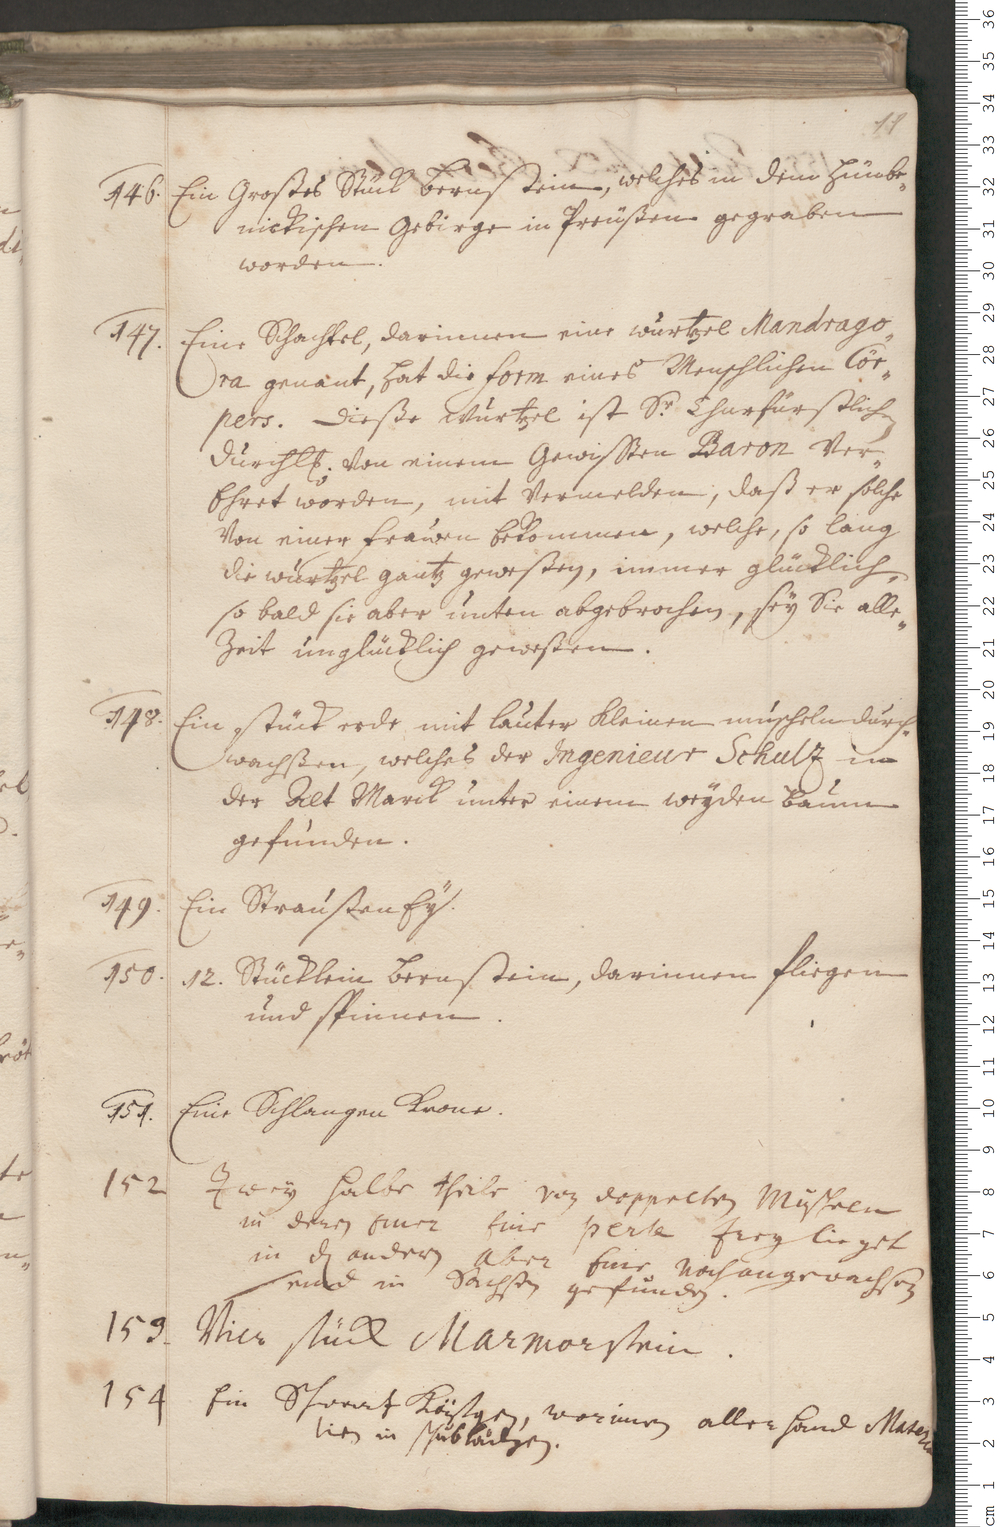 11
146. Ein Großes Stück Bernstein, welches in dem Hünbe-
nickischen Gebirge in Preüßen gegraben
worden.
147. Eine Schachtel, darinnen eine wurtzel Mandrago-
ra genant, hat die form eines Menschlichen Cör-
pers. Dieße wurtzel ist Sr. Churfürstlich
Durchlt. von einem Gewißen Baron Ver-
Ehret worden, mit Vermelden, daß er solche
Von einer frauen bekommen, welche, so lang
die wurtzel gantz geweßen, immer glücklich,
so bald sie aber unten abgebrochen, sey Sie alle-
Zeit unglücklich geweßen.
148. Ein stück erde mit lauter kleinen muscheln durch-
wachßen, welches der Ingenieur Schultz in
der Alt Marck unter einem weyden Baum
gefunden.
149. Ein Straußen Ey.
150. 12. Stücklein Bernstein, darinnen fliegen
und spinnen.
151. Eine Schlangen Krone.
152 Zwey halbe theile von doppelten Muscheln
in denen einer Eine perle frey lieget
in d andern aber Eine noch angewachsen
sind in Sachsen gefunden.
153. Vier stück Marmorstein.
154 Ein Schwartz Kästgen, worinnen aller hand Mater
lien in schübladgen.